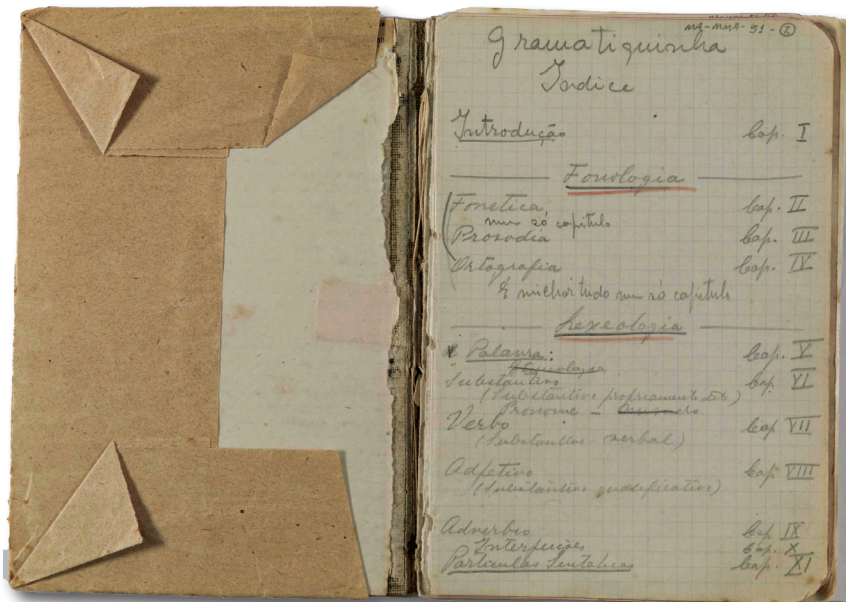 MA-MMA-51-(2)
Gramatiquinha
Indice
Introdução Cap. I
Fonologia
Fonetica Cap. II
num só capitulo
Prosodia Cap. III
Ortografia Cap. IV
É milhor tudo num só capitulo
Lexeologia
Palavra: Cap. V
Substantivo Cap. VI
(Substantivo propriamente dito)
Pronome -
Verbo Cap. VII
(Substantivo verbal)
Adjetivo Cap. VIII
(Substantivo qualificativo)
Adverbio Cap. IX
Interjeições Cap. X
Particulas Sintaticas Cap. XI